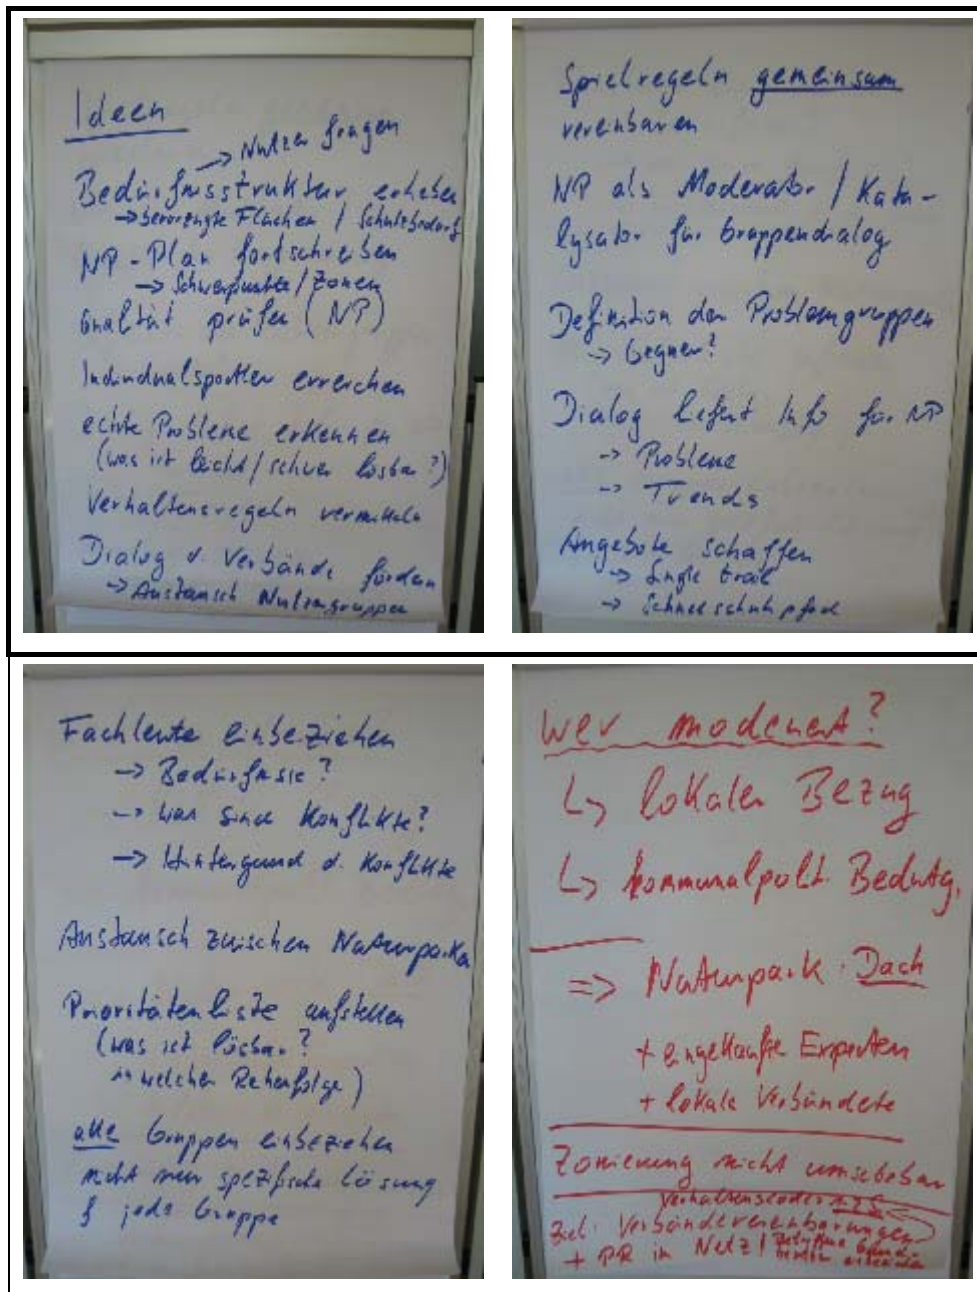 Ideen
→ Nutzer fragen
Bedürfnisstruktur erheben
→ bevorzugte Flächen / Schutzbedarf
NP-Plan fortschreiben
→ Schwerpunkte / Zonen
Qualität prüfen (NP)
Individualsportler erreichen
echte Probleme erkennen
(was ist leicht / schwer lösbar?)
Verhaltensregeln vermitteln
Dialog d. Verbände fördern
→ Austausch Nutzergruppen
Spielregeln gemeinsam
vereinbaren
NP als Moderator / Kata-
lysator für Gruppendialog
Definition der Problemgruppen
→ Gegner?
Dialog liefert Info für NP
→ Probleme
→ Trends
Angebote schaffen
→ Single trail
→ Schneeschuhpfade
Fachleute einbeziehen
→ Bedürfnisse?
→ was sind Konflikte?
→ Hintergrund d. Konflikte
Austausch zwischen Naturparken
Prioritätenliste aufstellen
(was ist lösbar?
in welcher Reihenfolge)
alle Gruppen einbeziehen
nicht nur spezifische Lösung
f jede Gruppe
Wer moderiert?
↳ lokaler Bezug
↳ kommunalpolit. Bedeutg.
⇒ Naturpark: Dach
+ eingekaufte Experten
+ lokale Verbündete
Zonierung nicht umsetzbar
Verhaltenscodex
Ziel: Verbändevereinbarungen
+ PR in Netz!